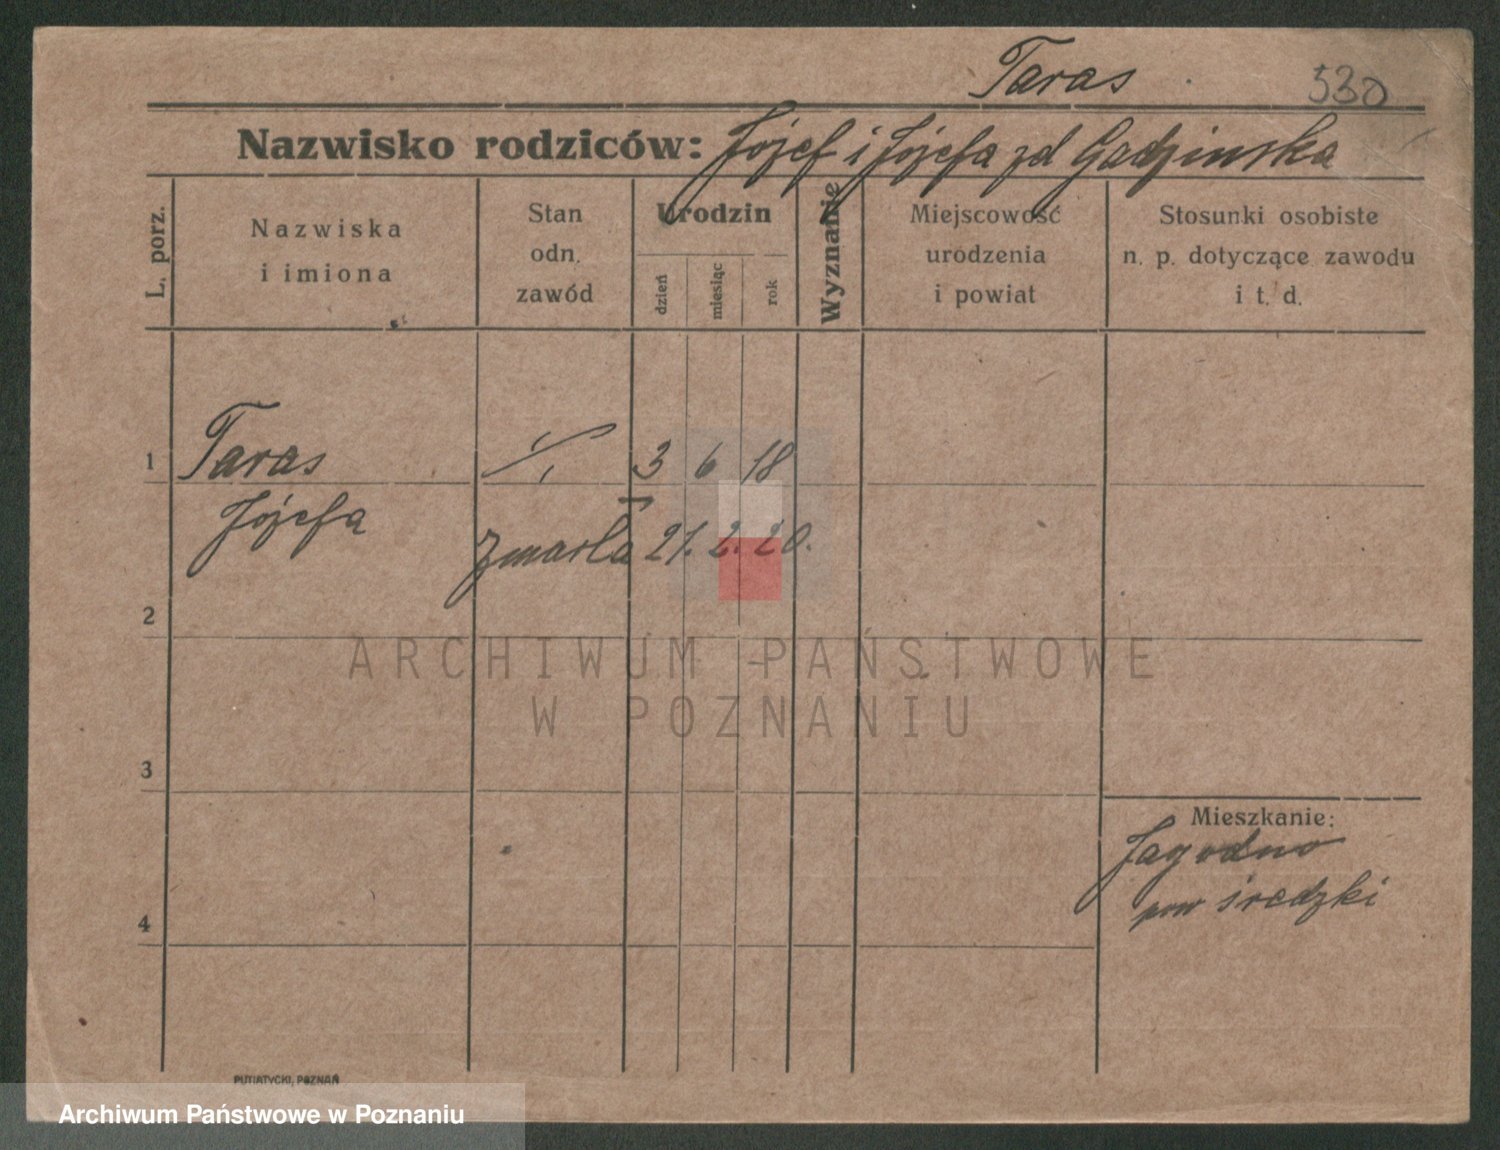 Taras 530
Nazwisko rodziców: Józef i Józefa zd Gadzinska
L. porz.
Nazwiska
i imiona
Stan
odn.
zawód
Urodzin
dzień
miesiąc
rok
Wyznanie
Miejscowość
urodzenia
i powiat
Stosunki osobiste
n. p. dotyczące zawodu
i t. d.
1 Taras 3 6 18
Józefa
zmarła 21. 2. 20.
2
ARCHIWUM PAŃSTWOWE
W POZNANIU
3
Mieszkanie:
Jagodno
pow średzki
4
PUTIATYCKI, POZNAŃ
Archiwum Państwowe w Poznaniu